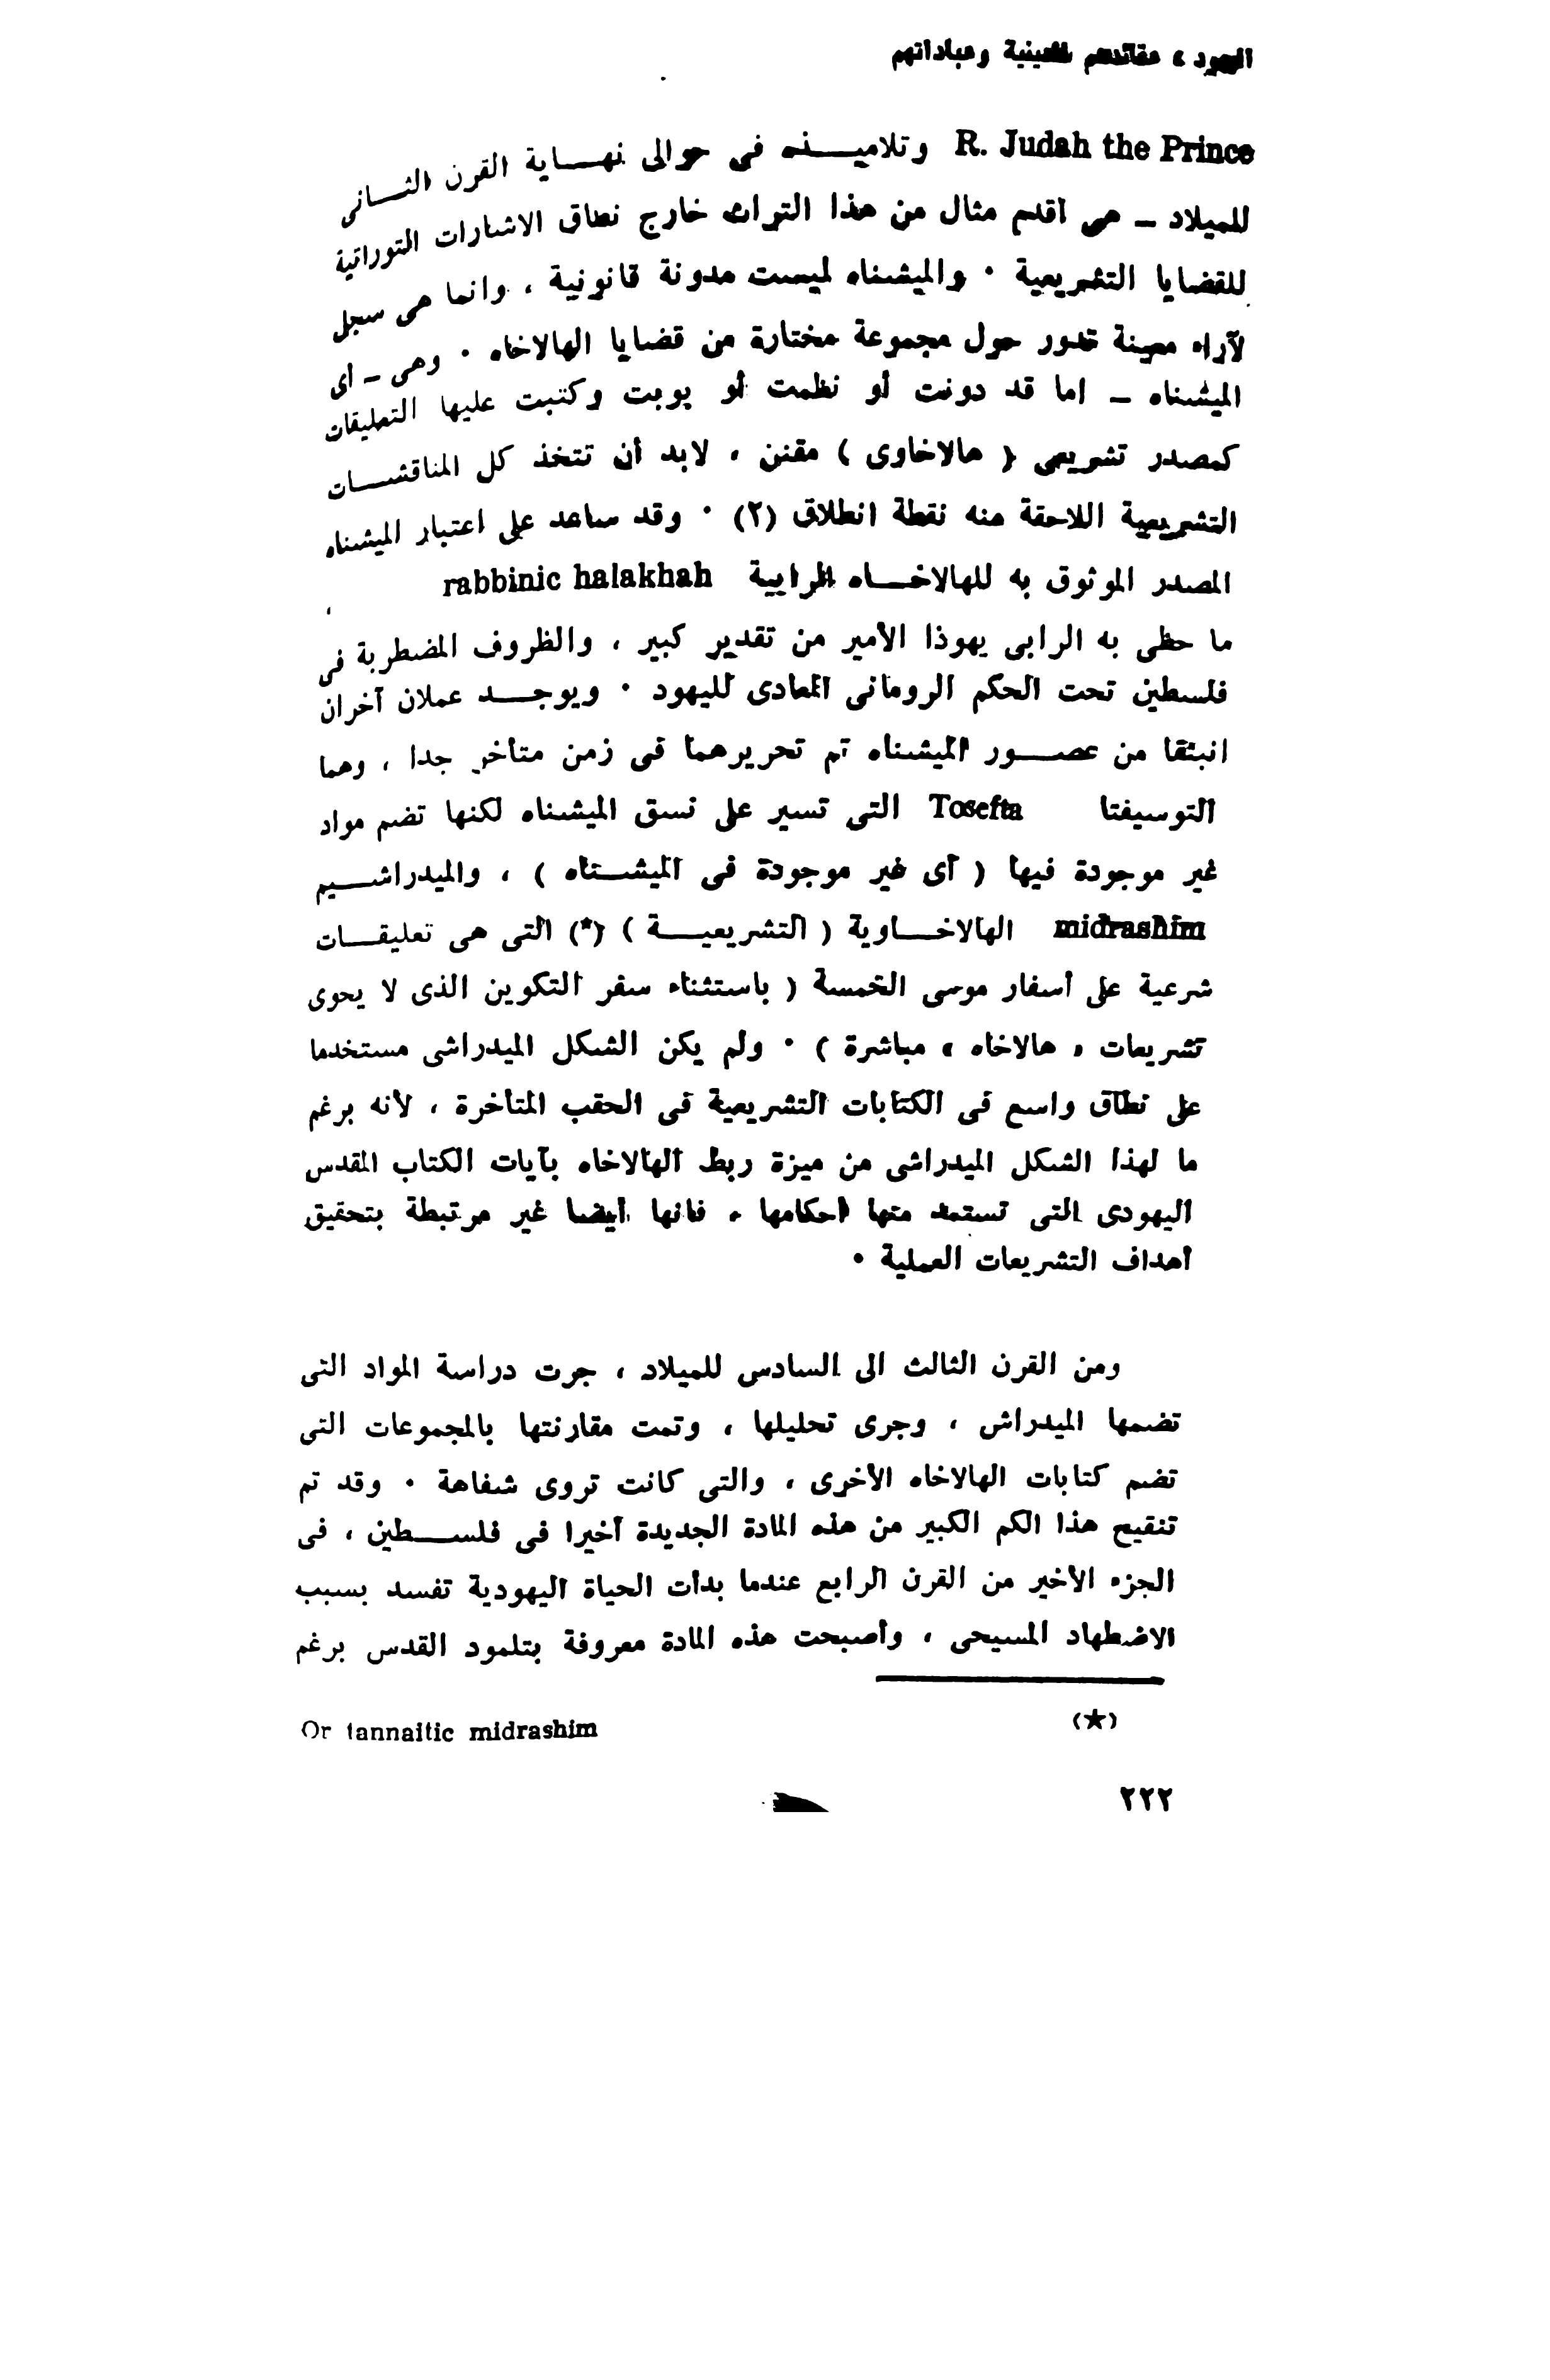 اليهود ، عقائدهم الدينية وعباداتهم
R. Judah the Prince وتلاميـــذه في حوالى نهـــاية القرن الثـــانى
للميلاد ــ هى أقدم مثال من هذا التراث خارج نطاق الاشارات التوراتية
للقضايا التشريعية ٠ والميشناه ليست مدونة قانونية ، وانما هى سجل
لآراء معينة تدور حول مجموعة مختارة من قضايا الهالاخاه ٠ وهى ــ أى
الميشناه ــ اما قد دونت أو نظمت أو بوبت وكتبت عليها التعليقات
كمصدر تشريعى ( هالاخاوى ) مقنن ، لابد أن تتخذ كل المناقشـــات
التشريعية اللاحقة منه نقطة انطلاق (٢) ٠ وقد ساعد على اعتبار الميشناه
المصدر الموثوق به للهالاخـــاه الرابية rabbinic halakhah
ما حظى به الرابى يهوذا الأمير من تقدير كبير ، والظروف المضطربة فى
فلسطين تحت الحكم الرومانى المعادى لليهود ٠ ويوجـــد عملان آخران
انبثقا من عصـــور الميشناه تم تحريرهما فى زمن متأخر جدا ، وهما
التوسيفتا Tosefta التى تسير على نسق الميشناه لكنها تضم مواد
غير موجودة فيها ( أى غير موجودة فى الميشـــناه ) ، والميدراشـــيم
midrashim الهالاخـــاوية ( التشريعيـــة ) (*) التى هى تعليقـــات
شرعية على أسفار موسى الخمسة ( باستثناء سفر التكوين الذى لا يحوى
تشريعات « هالاخاه » مباشرة ) ٠ ولم يكن الشكل الميدراشى مستخدما
على نطاق واسع فى الكتابات التشريعية فى الحقب المتأخرة ، لأنه برغم
ما لهذا الشكل الميدراشى من ميزة ربط الهالاخاه بآيات الكتاب المقدس
اليهودى التى تستمد منها أحكامها ، فانها أيضا غير مرتبطة بتحقيق
أهداف التشريعات العملية ٠
ومن القرن الثالث الى السادس للميلاد ، جرت دراسة المواد التى
تضمها الميدراش ، وجرى تحليلها ، وتمت مقارنتها بالمجموعات التى
تضم كتابات الهالاخاه الأخرى ، والتى كانت تروى شفاهة ٠ وقد تم
تنقيح هذا الكم الكبير من هذه المادة الجديدة أخيرا فى فلســـطين ، فى
الجزء الأخير من القرن الرابع عندما بدأت الحياة اليهودية تفسد بسبب
الاضطهاد المسيحى ، وأصبحت هذه المادة معروفة بتلمود القدس برغم
(★) Or tannaitic midrashim
٢٢٢